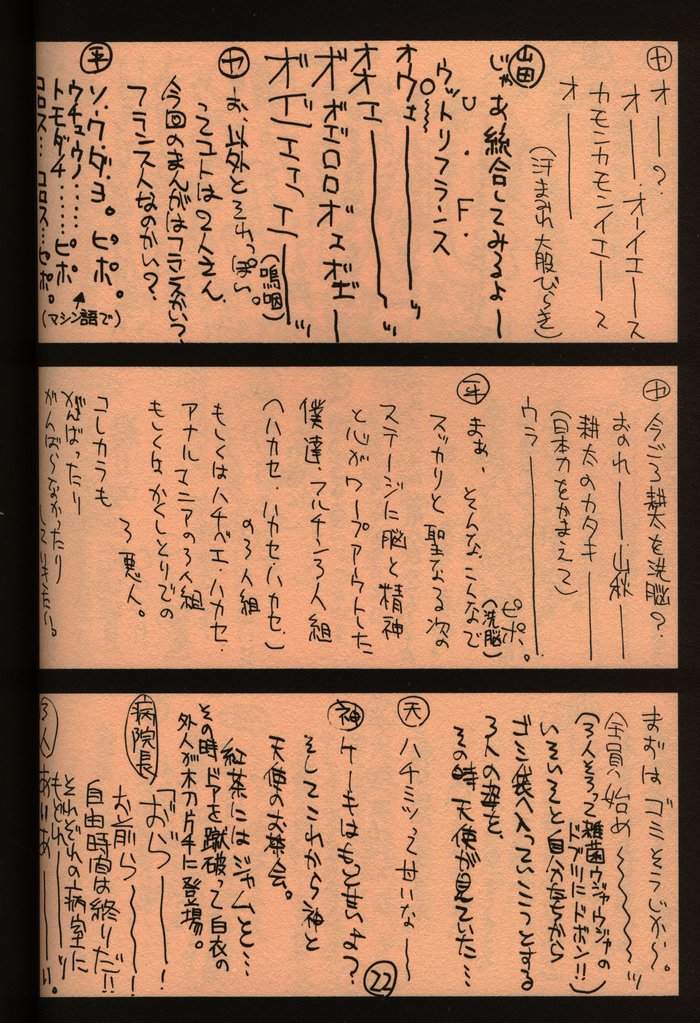 ヤ オ──?
オ──.オーイエース
カモンカモンイエース
オ────
(汗まみれ大股びらき)
山田 じゃあ統合してみるよー
U.F.
ウットリフランス
オウェ────ッ
オオエ────ッ
ボボエロロボエボゼー
ボエエエエ────ッ
(嗚咽)
ヤ お、以外とそれっぽい。
ってコトは2人さん、
今回のまんがはフランスかい?
フランス人なのかい?
平 ソ・ウ・ダ・ヨ。ピポ。
ウチュウノ……ピポ
トモダチ……ピポ
コロス…コロス…ピポ。
(マシン語で)
ヤ 今ごろ耕太を洗脳?
おのれ────山秋
耕太のカタキ────
(日本刀をかまえて)
ウラ────
ピポ。
(洗脳)
平 まぁ、そんなこんなで
スッカリと聖なる次の
ステージに脳と精神
と心がワープアウトした
僕達・フルチン3人組
(ハカセ・ハカセ・ハカセ)
の3人組
もしくはハチベエ・ハカセ・
アナルマニアの3人組
もしくはかくしとりでの
3悪人。
コレカラも
がんばったり
がんばらなかったり
していきたい。
まずはゴミそうじから。
全員、始め〜〜〜ッ
(3人そろって雑菌ウジャウジャの
ドブ川にドボン!!)
いそいそと自分たちから
ゴミ袋へ入っていこうとする
3人の姿を、
その時 天使が見ていた…
天 ハチミツって甘いな〜
神 ケーキはもっと甘いよ?
そしてこれから神と
天使のお茶会。
紅茶にはジャムと…
その時ドアを蹴破って白衣の
外人が木刀片手に登場。
病院長 「おら────!
お前ら────!
自由時間は終りだ!!
それぞれの病室に
もどれ────ッ
3人 あいあ────い。
22